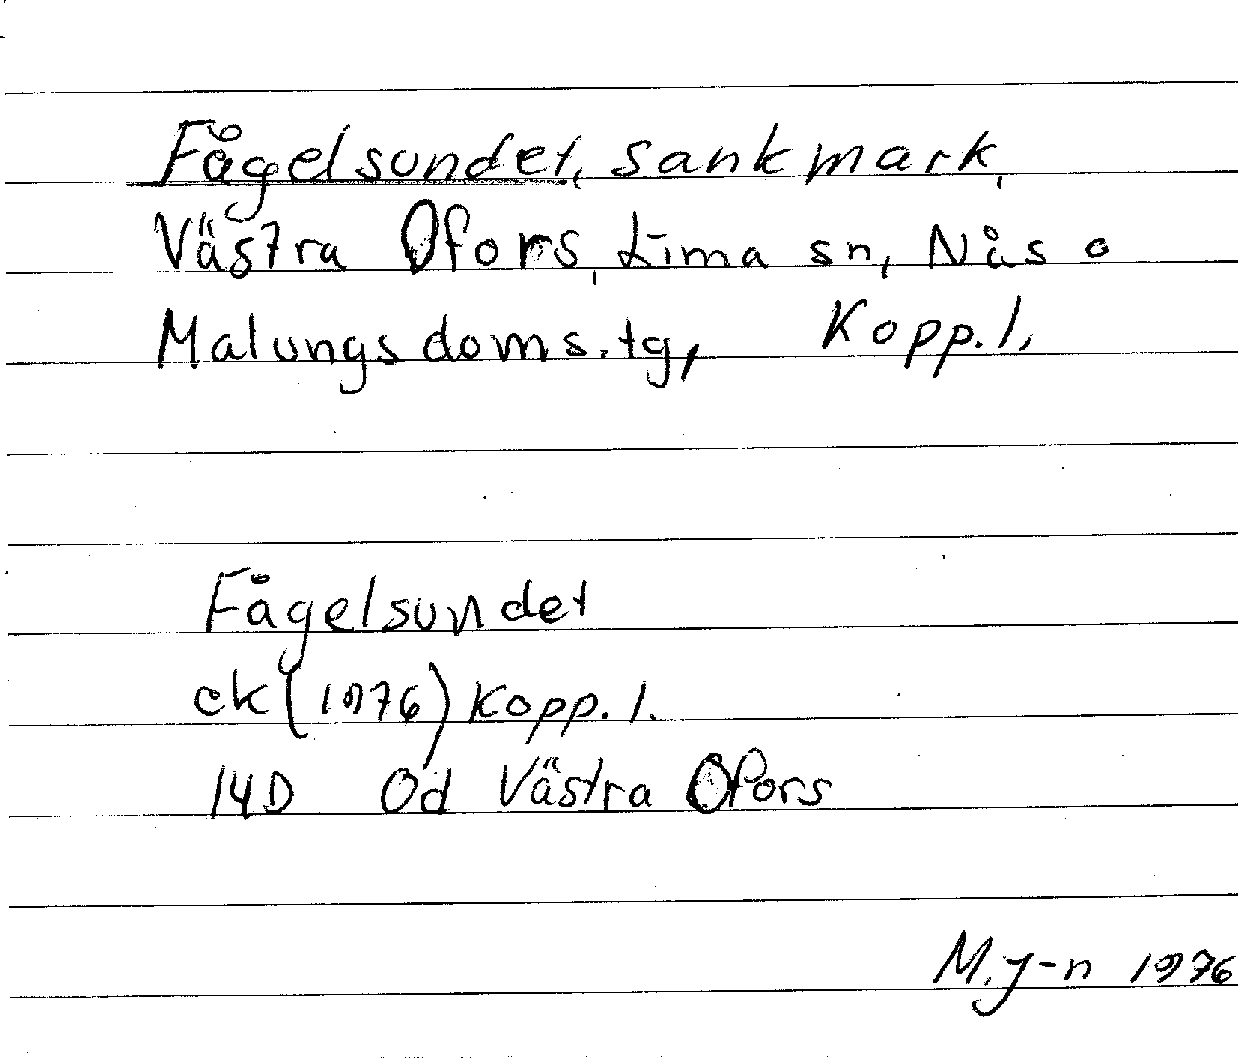 Fågelsundet, sankmark,
Västra Ofors, Lima sn, Nås o
Malungs doms.tg, Kopp.l,
Fågelsundet
ek (1976) Kopp.l.
14D 0d Västra Ofors
M.J-n 1976